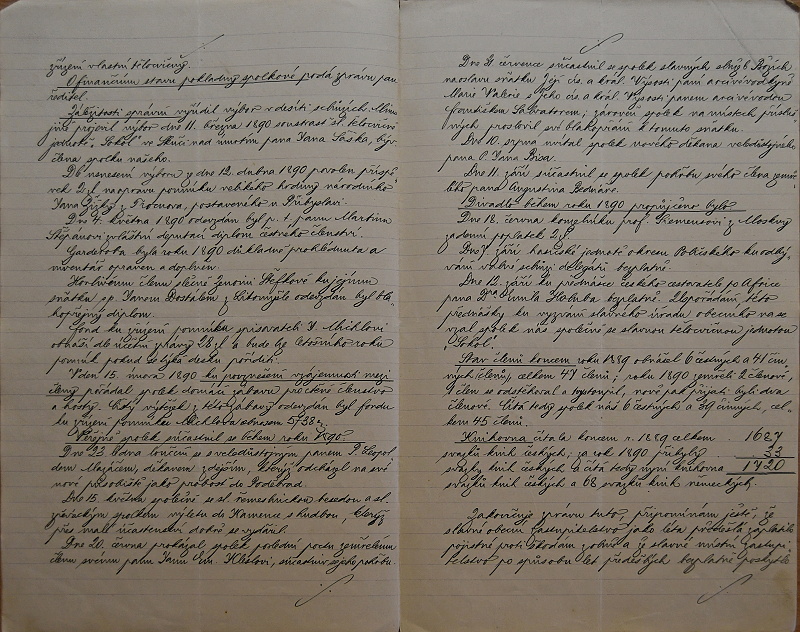 zřízení vlastní tělocvičny.
O finančním stavu pokladny spolkové podá zprávu pan
ředitel.
Záležitosti správní vyřídil výbor v desíti schůzích. Mimo
jiné projevil výbor dne 11. března 1890 soustrast sl. tělocvičné
jednotě "Sokol" ve Skůi nad úmrtím pana Jana Saska,
člena spolku našeho.
Dle usnesení výboru z dne 12. dubna 1890 povolen příspě-
vek 2 zl. na opravu pomníku velikého hrdiny národního
Jana Žižky z Trocnova, postaveného u Přibyslavi.
Dne 4. května 1890 odevzdán byl p. t. panu Martinu
Štěpánovi zvláštní deputací diplom čestného členství.
Garderoba byla roku 1890 důkladně prohlédnuta a
inventář opraven a doplněn.
Horlivému členu slečně Žofii Štefkové ku jejímu
sňatku sp. Janem Dostálem z Litomyšle odevzdán byl bla-
hopřejný diplom.
Fond ku zřízení pomníku spisovateli J. Michlovi
obnáší dle účetní zprávy zl. a bude lze letošního roku
pomník pokud se týká desku poříditi.
V den 15. února 1890 ku povznesení vzájemnosti mezi
členy pořádal spolek domácí zábavu pro ctěné členstvo
a hosty. Čistý výtěžek z této zábavy odevzdán byl fondu
ku zřízení pomníku Michlova obnosem 5 zl 38 kr.
Veřejně spolek súčastnil se během roku 1890.
Dne 23. ledna loučení se s veledůstojným panem P. Leopol-
dem Mazáčem, děkanem zdejším, který odcházel na své
nové působiště jako probošt do Poděbrad.
Dne 15. května společně se sl. řemeslnickou besedou a sl.
pěveckým spolkem výletu do Kamence s hudbou, který
přes malé účastenství dobře se vydařil.
Dne 20. června prokázal spolek poslední poctu zemřelému
členu svému panu Janu Em. Kleslovi, súčastniv se jeho pohřbu.
Dne 31. července súčastnil se spolek slavných služeb Božích
na oslavu sňatku Její cís. a král. Výsosti paní arcivévodkyně
Marie Valerie s Jeho cís. a král. Výsostí panem arcivévodou
Františkem Salvatorem; zároveň spolek na místech přísluš-
ných proslovil své blahopřání k tomuto sňatku.
Dne 10. srpna uvítal spolek nového děkana veledůstojného
pana P. Jana
Dne 11. září súčastnil se spolek pohřbu svého člena zemře-
lého pana Augustina Bednáře.
Divadlo během roku 1890 propůjčeno bylo
Dne 18. června kouzelníku prof. Klemensovi z Moskvy
za denní poplatek 2 zl.
Dne 7. září hasičské jednotě okresu Poličského ku odbý-
vání valné schůze delegátů bezplatně.
Dne 12. září ku přednášce českého cestovatele po Africe
pana Dra Emila Holuba bezplatně. Uspořádání této
přednášky ku vyzvání slavného úřadu obecního na se
vzal spolek náš společně se slavnou tělocvičnou jednotou
"Sokol".
Stav členů koncem roku 1889 obnášel 6 čestných a 41 čin-
ných členů, celkem 47 členů; roku 1890 zemřeli 2 členové,
1 člen se odstěhoval a vystoupil, nově pak přijati byli dva
členové. Čítá tedy spolek náš 6 čestných a 39 činných, cel-
kem 45 členů.
Knihovna čítala koncem r. 1889 celkem 1687
svazků knih českých; za rok 1890 přibylo 33
svazky knih českých a čítá tedy nyní knihovna 1720
svazků knih českých a 68 svazků knih německých.
Zakončuje zprávu tuto, připomínám ještě, že
slavné obecní zastupitelstvo jako léta předešlá zaplatilo
pojistné proti škodám z ohně a že slavné místní zastupi-
telstvo po způsobu let předešlých bezplatně poskytlo